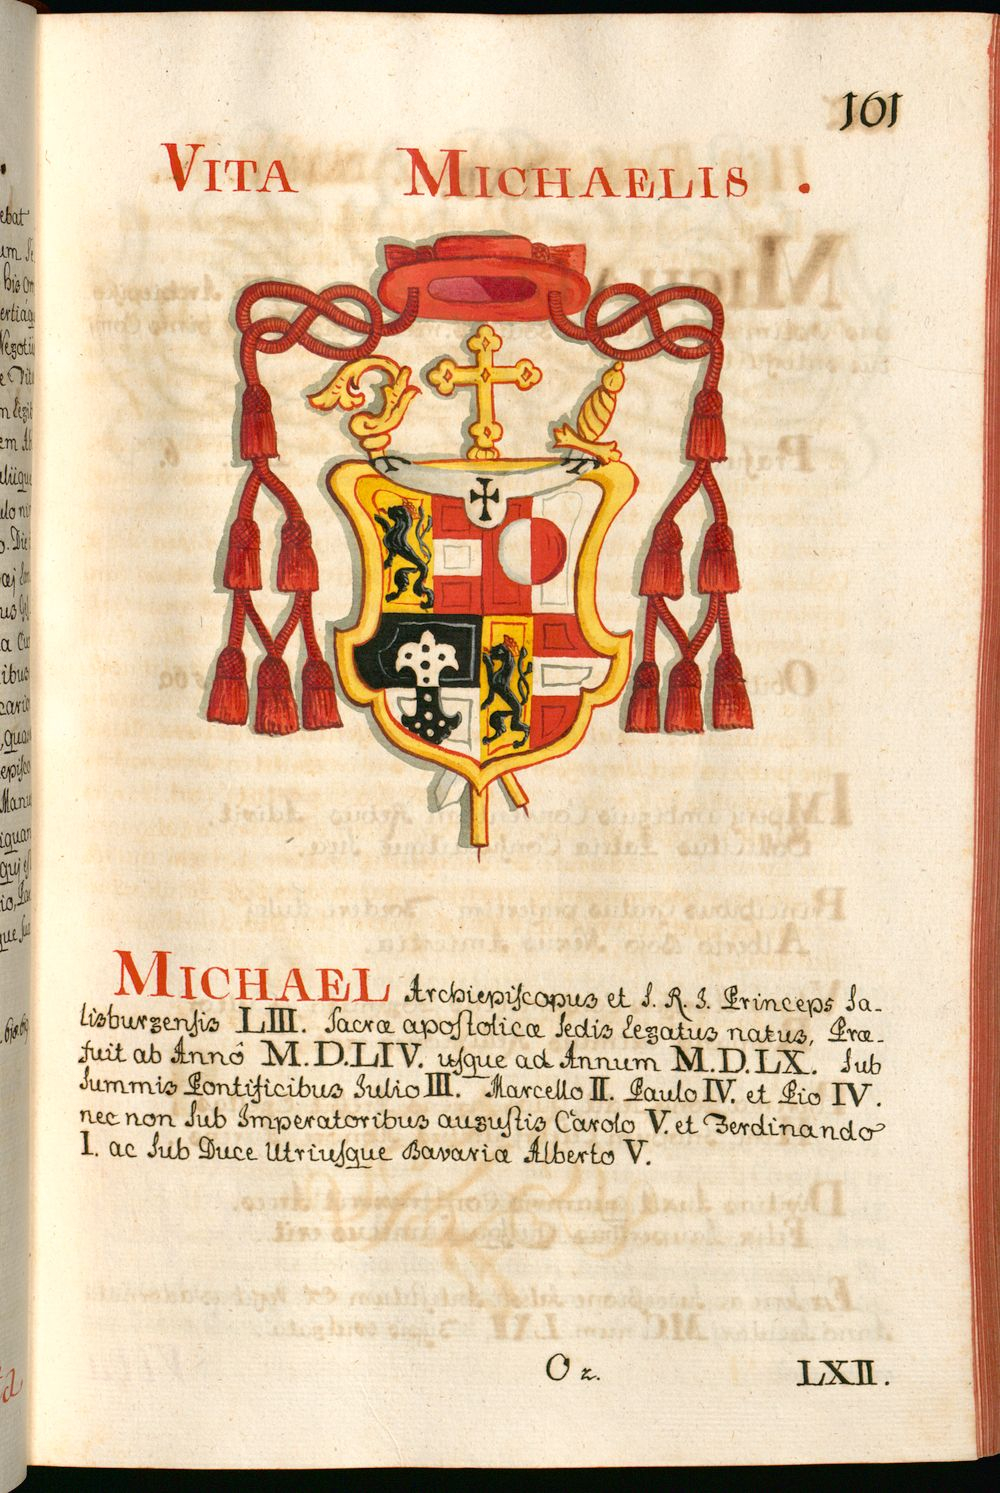 161
VITA MICHAELIS .
MICHAEL Archiepiſcopus et S. R. I. Princeps Sa-
lisburgenſis LIII. Sacræ apoſtolicæ Sedis Legatus natus, Præ-
fuit ab Annô M.D.LIV. uſque ad Annum M.D.LX. Sub
Summis Pontificibus Iulio III. Marcello II. Paulo IV. et Pio IV.
nec non Sub Imperatoribus auguſtis Carolo V. et Ferdinando
I. ac Sub Duce Utriuſque Bavariæ Alberto V.
O 2.
LXII.